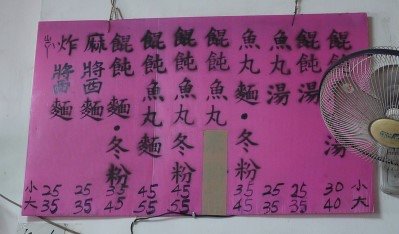 餛飩湯
餛飩湯
魚丸湯
魚丸麵·冬粉
餛飩魚丸
餛飩魚丸冬粉
餛飩魚丸麵
餛飩麵·冬粉
麻醬麵
炸醬麵
小 25 25 35 45 45 35 25 25 30 小
大 35 35 45 55 55 45 35 35 40 大